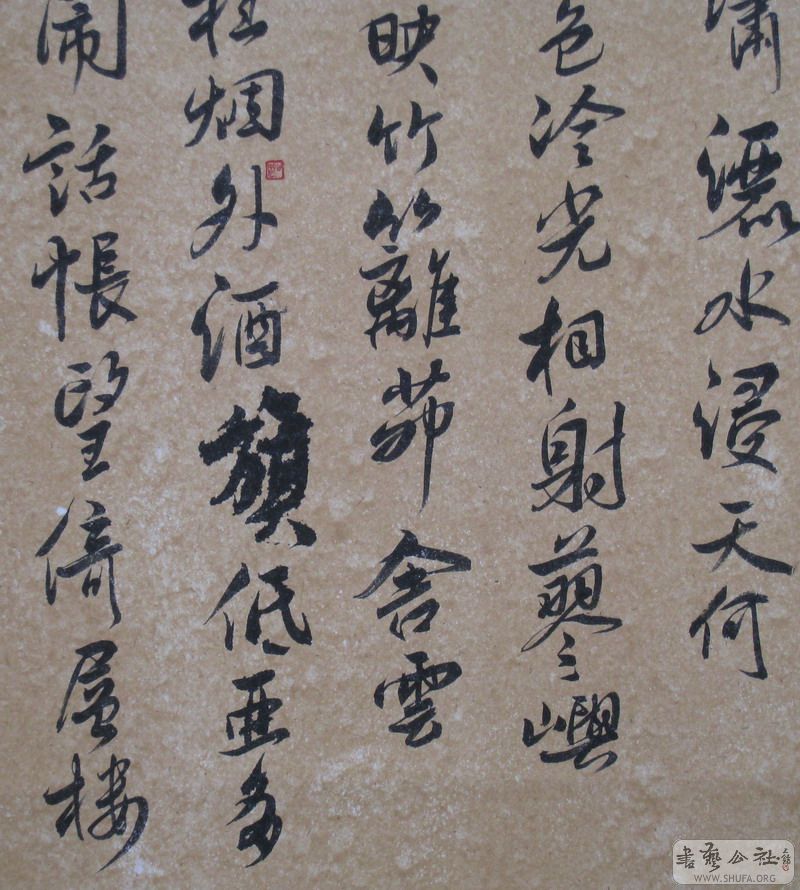 瀟灑水浸天何
色冷光相射蓼嶼
映竹籬茆舍雲
挂烟外酒旗低亞多
話悵望倚層樓
書藝公社
WWW.SHUFA.ORG